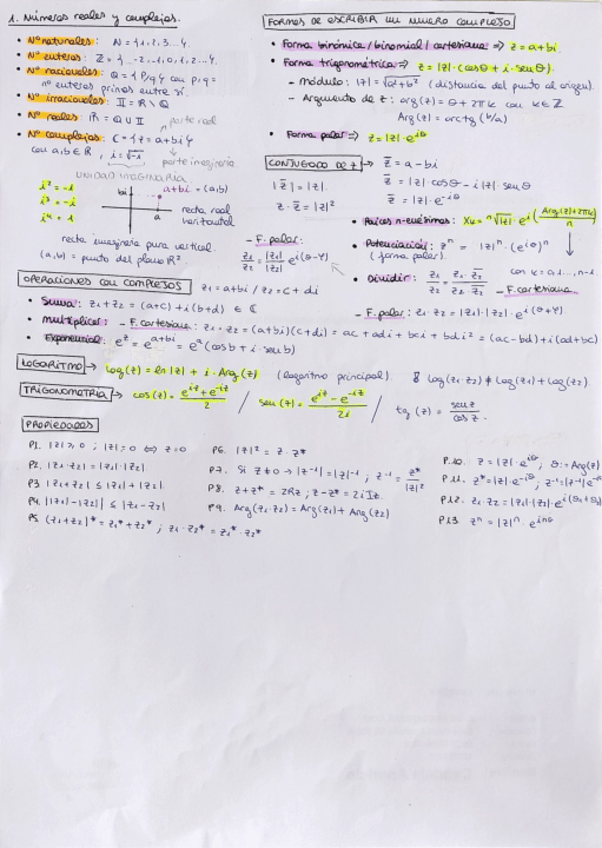 1. Números reales y complejos.
• Nº naturales: N = {1, 2, 3... }.
• Nº enteros: Z = {... -2, -1, 0, 1, 2... }.
• Nº racionales: Q = { P/q con p, q =
nº enteros primos entre sí.
• Nº irracionales: II = R \ Q
• Nº reales: R = Q ∪ II
parte real
• Nº complejos: C = { z = a + bi }
con a, b ∈ R, i = √-1
parte imaginaria
UNIDAD IMAGINARIA
i² = -1
i³ = -i
i⁴ = 1
bi
a + bi = (a, b)
a
recta real
horizontal
recta imaginaria pura vertical.
(a, b) = punto del plano R².
FORMAS DE ESCRIBIR UN NUMERO COMPLEJO
• Forma binómica / binomial / cartesiana => z = a + bi.
• Forma trigonométrica => z = |z| · (cos θ + i · sen θ).
- módulo: |z| = √a² + b² (distancia del punto al origen).
- Argumento de z: arg(z) = θ + 2πk con k ∈ Z
Arg(z) = arctg(b/a)
• Forma polar => z = |z| · e^iθ
CONJUGADO DE Z → z̄ = a - bi
|z̄| = |z|.
z̄ = |z| · cos θ - i |z| · sen θ
z · z̄ = |z|²
z̄ = |z| · e^-iθ
• Raíces n-ésimas: Xk = ⁿ√|z| · e^i(Arg(z)+2πk)/n
• Potenciación: zⁿ = |z|ⁿ · (e^iθ)ⁿ
(forma polar).
con k = 0, 1..., n-1.
• Dividir: z₁/z₂ = z₁ · z̄₂ / z₂ · z̄₂ - F. cartesiana
- F. polar:
z₁/z₂ = |z₁|/|z₂| e^i(θ-φ)
- F. polar: z₁ · z₂ = |z₁| · |z₂| · e^i(θ+φ)
OPERACIONES CON COMPLEJOS z₁ = a + bi / z₂ = c + di
• Suma: z₁ + z₂ = (a+c) + i(b+d) ∈ C
• Multiplicar: - F. cartesiana: z₁ · z₂ = (a+bi)(c+di) = ac + adi + bci + bdi² = (ac-bd) + i(ad+bc)
• Exponencial: e^z = e^a+bi = e^a (cos b + i · sen b)
LOGARITMO → log(z) = ln|z| + i · Arg(z) (logaritmo principal) log(z₁ · z₂) ≠ log(z₁) + log(z₂)
TRIGONOMETRIA → cos(z) = e^iz + e^-iz / 2 / sen(z) = e^iz - e^-iz / 2i / tg(z) = sen z / cos z.
PROPIEDADES
P1. |z| ≥ 0 ; |z| = 0 ⇔ z = 0
P2. |z₁ · z₂| = |z₁| · |z₂|
P3 |z₁ + z₂| ≤ |z₁| + |z₂|.
P4. ||z₁| - |z₂|| ≤ |z₁ - z₂|
P5 (z₁ + z₂)* = z₁* + z₂* ; z₁ · z₂* = z₁* · z₂*
P6. |z|² = z · z*
P7. Si z ≠ 0 → |z⁻¹| = |z|⁻¹, z⁻¹ = z*/|z|²
P8. z + z* = 2Rz ; z - z* = 2i Iz.
P9. Arg(z₁ · z₂) = Arg(z₁) + Arg(z₂)
P.10. z = |z| · e^iθ ; θ := Arg(z)
P.11. z* = |z| · e^-iθ ; z⁻¹ = |z⁻¹| e^-iθ
P.12. z₁ · z₂ = |z₁| · |z₂| · e^i(θ₁+θ₂)
P.13. zⁿ = |z|ⁿ · e^inθ